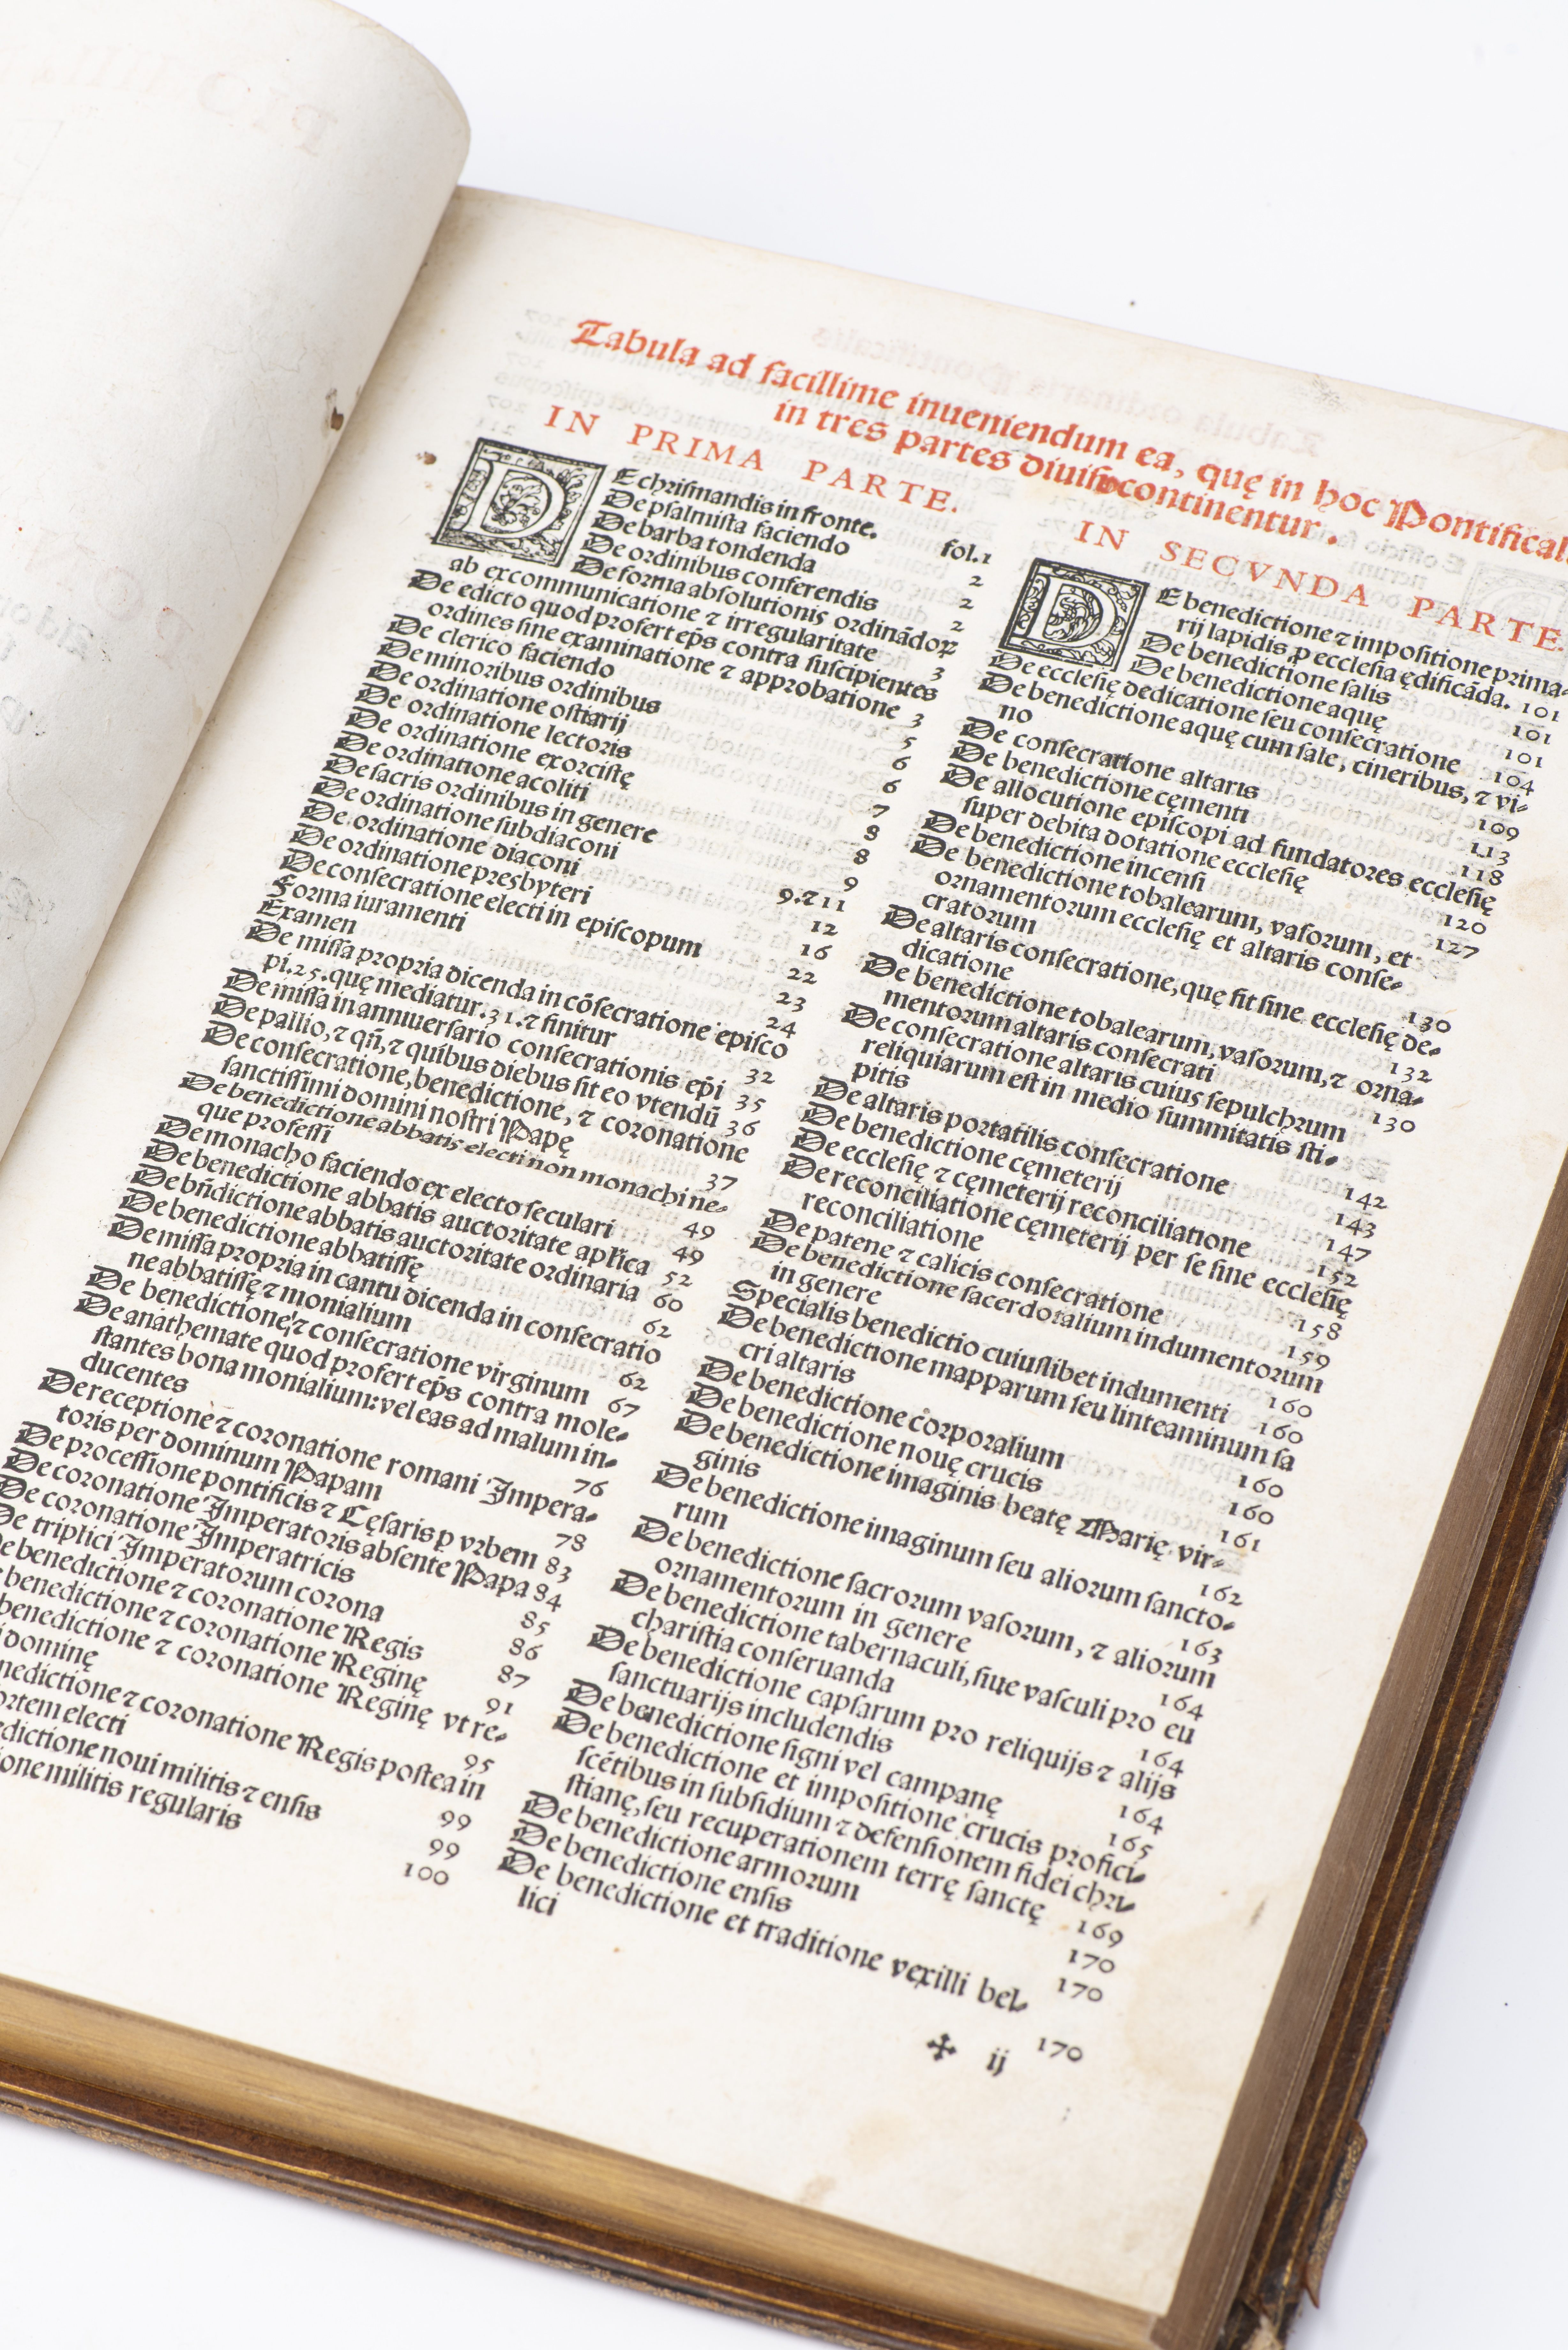 Tabula ad facillime inueniendum ea, quę in hoc Pontifical
in tres partes diuiso continentur.
IN PRIMA PARTE.
DE chrismandis in fronte. fol. 1
De psalmista faciendo 2
De barba tondenda 2
De ordinibus conferendis 2
De forma absolutionis ordinãdoꝝ
ab excommunicatione ⁊ irregularitate 3
De edicto quod profert ep̃s contra suscipientes
ordines sine examinatione ⁊ approbatione 3
De clerico faciendo 5
De minoribus ordinibus 6
De ordinatione ostiarij 6
De ordinatione lectoris 7
De ordinatione exorcistę 8
De ordinatione acoliti 8
De sacris ordinibus in genere 9
De ordinatione subdiaconi 9. ⁊ 11
De ordinatione diaconi 12
De ordinatione presbyteri 16
De consecratione electi in episcopum 22
Forma iuramenti 23
Examen 24
De missa propria dicenda in cõsecratione episco
pi. 25. quę mediatur. 31. ⁊ finitur 32
De missa in anniuersario consecrationis ep̃i 35
De pallio, ⁊ qñ, ⁊ quibus diebus sit eo vtendũ 36
De consecratione, benedictione, ⁊ coronatione
sanctissimi domini nostri Papę 37
De benedictione abbatis electi non monachi ne-
que professi 49
De monacho faciendo ex electo seculari 49
De benedictione abbatis auctoritate apľica 52
De bñdictione abbatis auctoritate ordinaria 60
De benedictione abbatissę 62
De missa propria in cantu dicenda in consecratio
ne abbatissę ⁊ monialium 62
De benedictione, ⁊ consecratione virginum 67
De anathemate quod profert ep̃s contra mole-
stantes bona monialium: vel eas ad malum in-
ducentes 76
De receptione ⁊ coronatione romani Impera-
toris per dominum Papam 78
De processione pontificis ⁊ Cęsaris p vrbem 83
De coronatione Imperatoris absente Papa 84
De coronatione Imperatricis 85
De triplici Imperatorum corona 86
De benedictione ⁊ coronatione Regis 87
benedictione ⁊ coronatione Reginę 91
benedictione ⁊ coronatione Reginę vt re-
i dominę 95
nedictione ⁊ coronatione Regis postea in
ortem electi 99
edictione noui militis ⁊ ensis 99
one militis regularis 100
IN SECVNDA PARTE.
DE benedictione ⁊ impositione prima-
rij lapidis p ecclesia ędificãda. 101
De benedictione salis 101
De benedictione aquę 101
De ecclesię dedicatione seu consecratione 104
De benedictione aquę cum sale, cineribus, ⁊ vi-
no 109
De consecratione altaris 113
De benedictione cęmenti 118
De allocutione episcopi ad fundatores ecclesię
super debita dotatione ecclesię 120
De benedictione incensi 127
De benedictione tobalearum, vasorum, et
ornamentorum ecclesię et altaris conse-
cratorum 130
De altaris consecratione, quę fit sine ecclesię de-
dicatione 132
De benedictione tobalearum, vasorum, ⁊ orna-
mentorum altaris consecrati 130
De consecratione altaris cuius sepulchrum
reliquiarum est in medio summitatis sti-
pitis 142
De altaris portatilis consecratione 143
De benedictione cęmeterij 147
De ecclesię ⁊ cęmeterij reconciliatione 152
De reconciliatione cęmeterij per se sine ecclesię
reconciliatione 158
De patene ⁊ calicis consecratione 159
De benedictione sacerdotalium indumentorum
in genere 160
Specialis benedictio cuiuslibet indumenti 160
De benedictione mapparum seu linteaminum sa
cri altaris 160
De benedictione corporalium 160
De benedictione nouę crucis 161
De benedictione imaginis beatę Marię vir-
ginis 162
De benedictione imaginum seu aliorum sancto-
rum 163
De benedictione sacrorum vasorum, ⁊ aliorum
ornamentorum in genere 164
De benedictione tabernaculi, siue vasculi pro eu
charistia conseruanda 164
De benedictione capsarum pro reliquijs ⁊ alijs
sanctuarijs includendis 164
De benedictione signi vel campanę 165
De benedictione et impositione crucis profici-
scẽtibus in subsidium ⁊ defensionem fidei chri-
stianę, seu recuperationem terrę sanctę 169
De benedictione armorum 170
De benedictione ensis 170
De benedictione et traditione vexilli bel-
lici 170
✠ ij